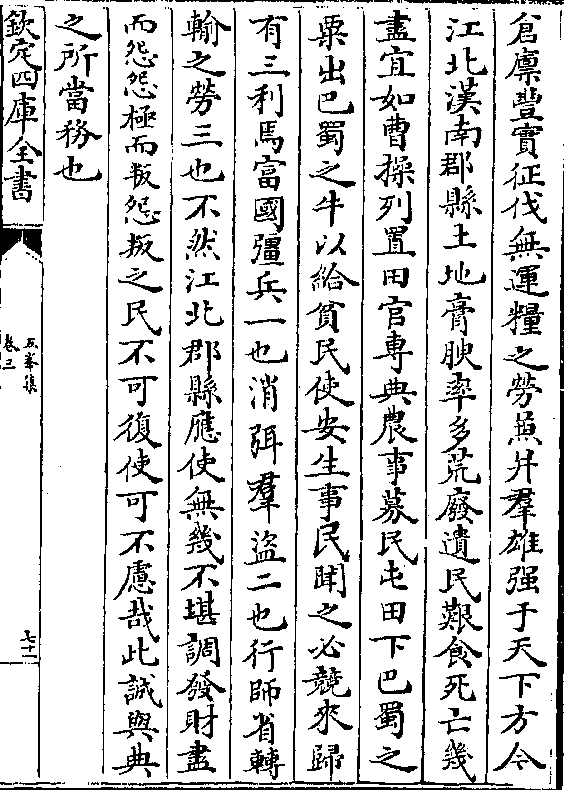 倉廩豐實征伐無運糧之勞兼并羣雄强于天下方今
江北漢南郡縣土地膏腴率多荒廢遺民艱食死亡幾
盡宜如曹操列置田官專典農事募民屯田下巴蜀之
粟出巴蜀之牛以給貧民使安生事民聞之必競來歸
有三利焉富國彊兵一也消弭羣盜二也行師省轉
輸之勞三也不然江北郡縣應使無幾不堪調發財盡
而怨怨極而叛怨叛之民不可復使可不慮哉此誠與典
之所當務也
欽定四庫全書
五峯集
卷三
七十二